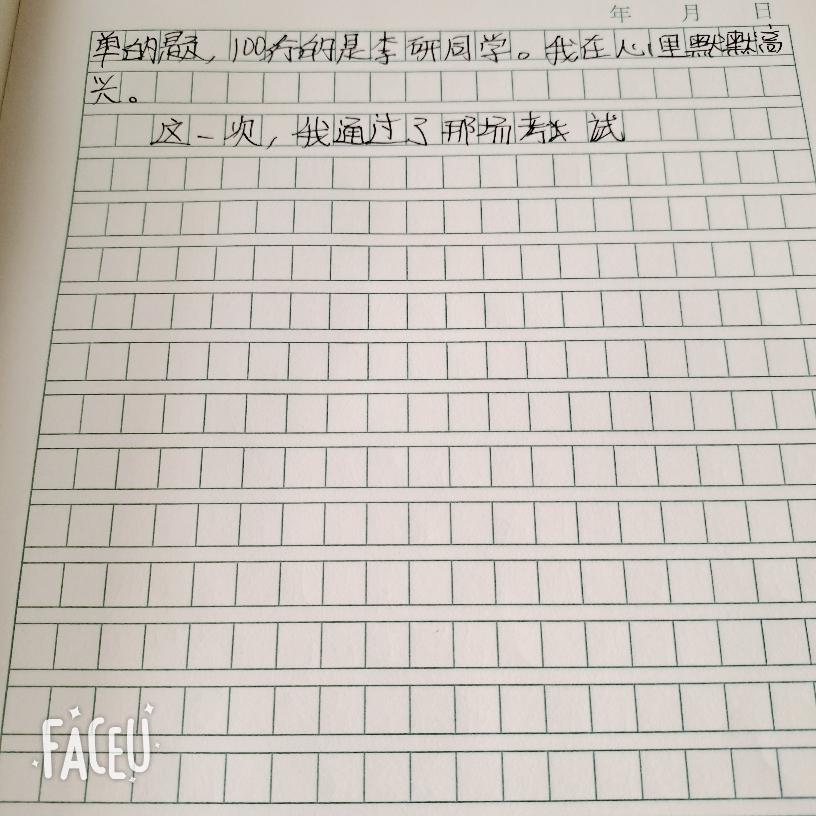 年 月 日
单的题，100分的是李研同学。我在心里默默高
兴。
这一次，我通过了那场考试
FACEU